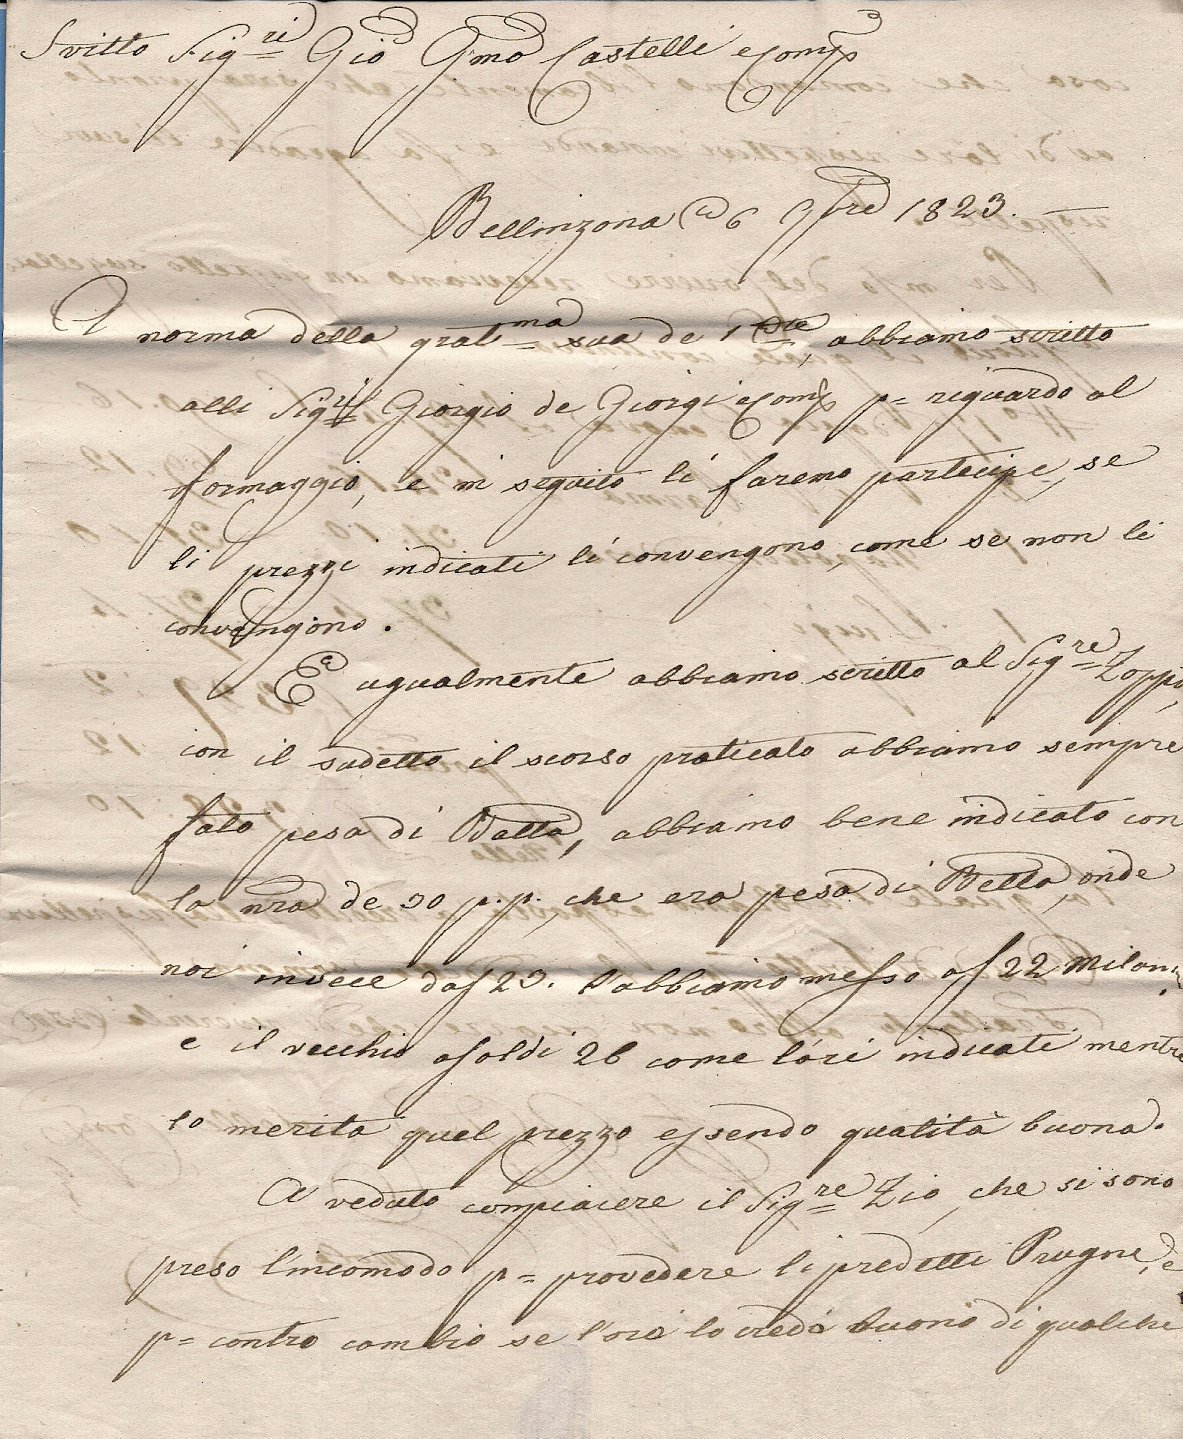 Svitto Sig.ri Gio Gmo Castelli e Comp
Bellinzona 6 9bre 1823.
A norma della grat.ma sua de 1 Cor.te, abbiamo scritto
alli Sig.ri Giorgio de Giorgi e Comp p= riguardo al
formaggio, e in seguito li faremo partecipe, se
li prezzi indicati li convengono, come se non li
convengono.
E ugualmente abbiamo scritto al Sig.re Zoppi,
con il sudetto il scorso praticato abbiamo sempre
fato pesa di Balla, abbiamo bene indicato con
la nra de 30 p.p., che era pesa di Bella, onde
noi invece da f 23. l'abbiamo messo a f 22 Milan
e il vecchio a soldi 26 come lori indicati mentre
lo merita quel prezzo essendo qualità buona.
A veduto compiacere il Sig.re Zio, che si sono
preso l'incomodo p= provedere li predetti Prugne, e
p= contro cambio se l'ora lo credà buono di qualche